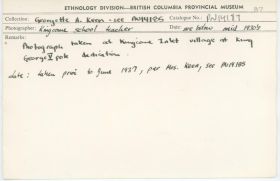 ETHNOLOGY DIVISION—BRITISH COLUMBIA PROVINCIAL MUSEUM
Collection: Georgette A. Keen - see PN14185 Catalogue No.: PN14189
Photographer: Kingcome school teacher Date: see below mid 1930's
Remarks:
Photograph taken at Kingcome Inlet village at King
George V pole dedication.
date: taken prior to June 1937, per Mrs. Keen, see PN14185